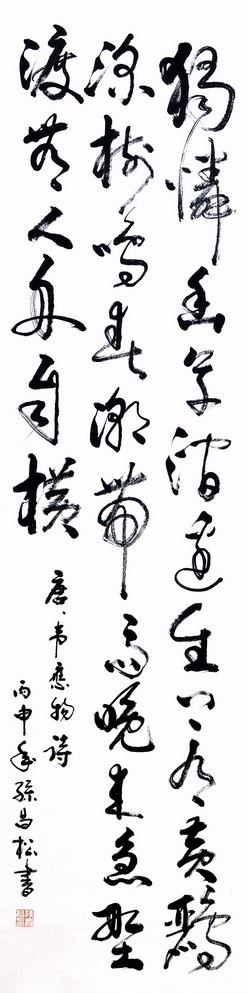 獨憐幽草澗邊生上有黃鸝
深樹鳴春潮帶雨晚來急野
渡無人舟自橫
唐、韋應物詩
丙申年孫昌松書